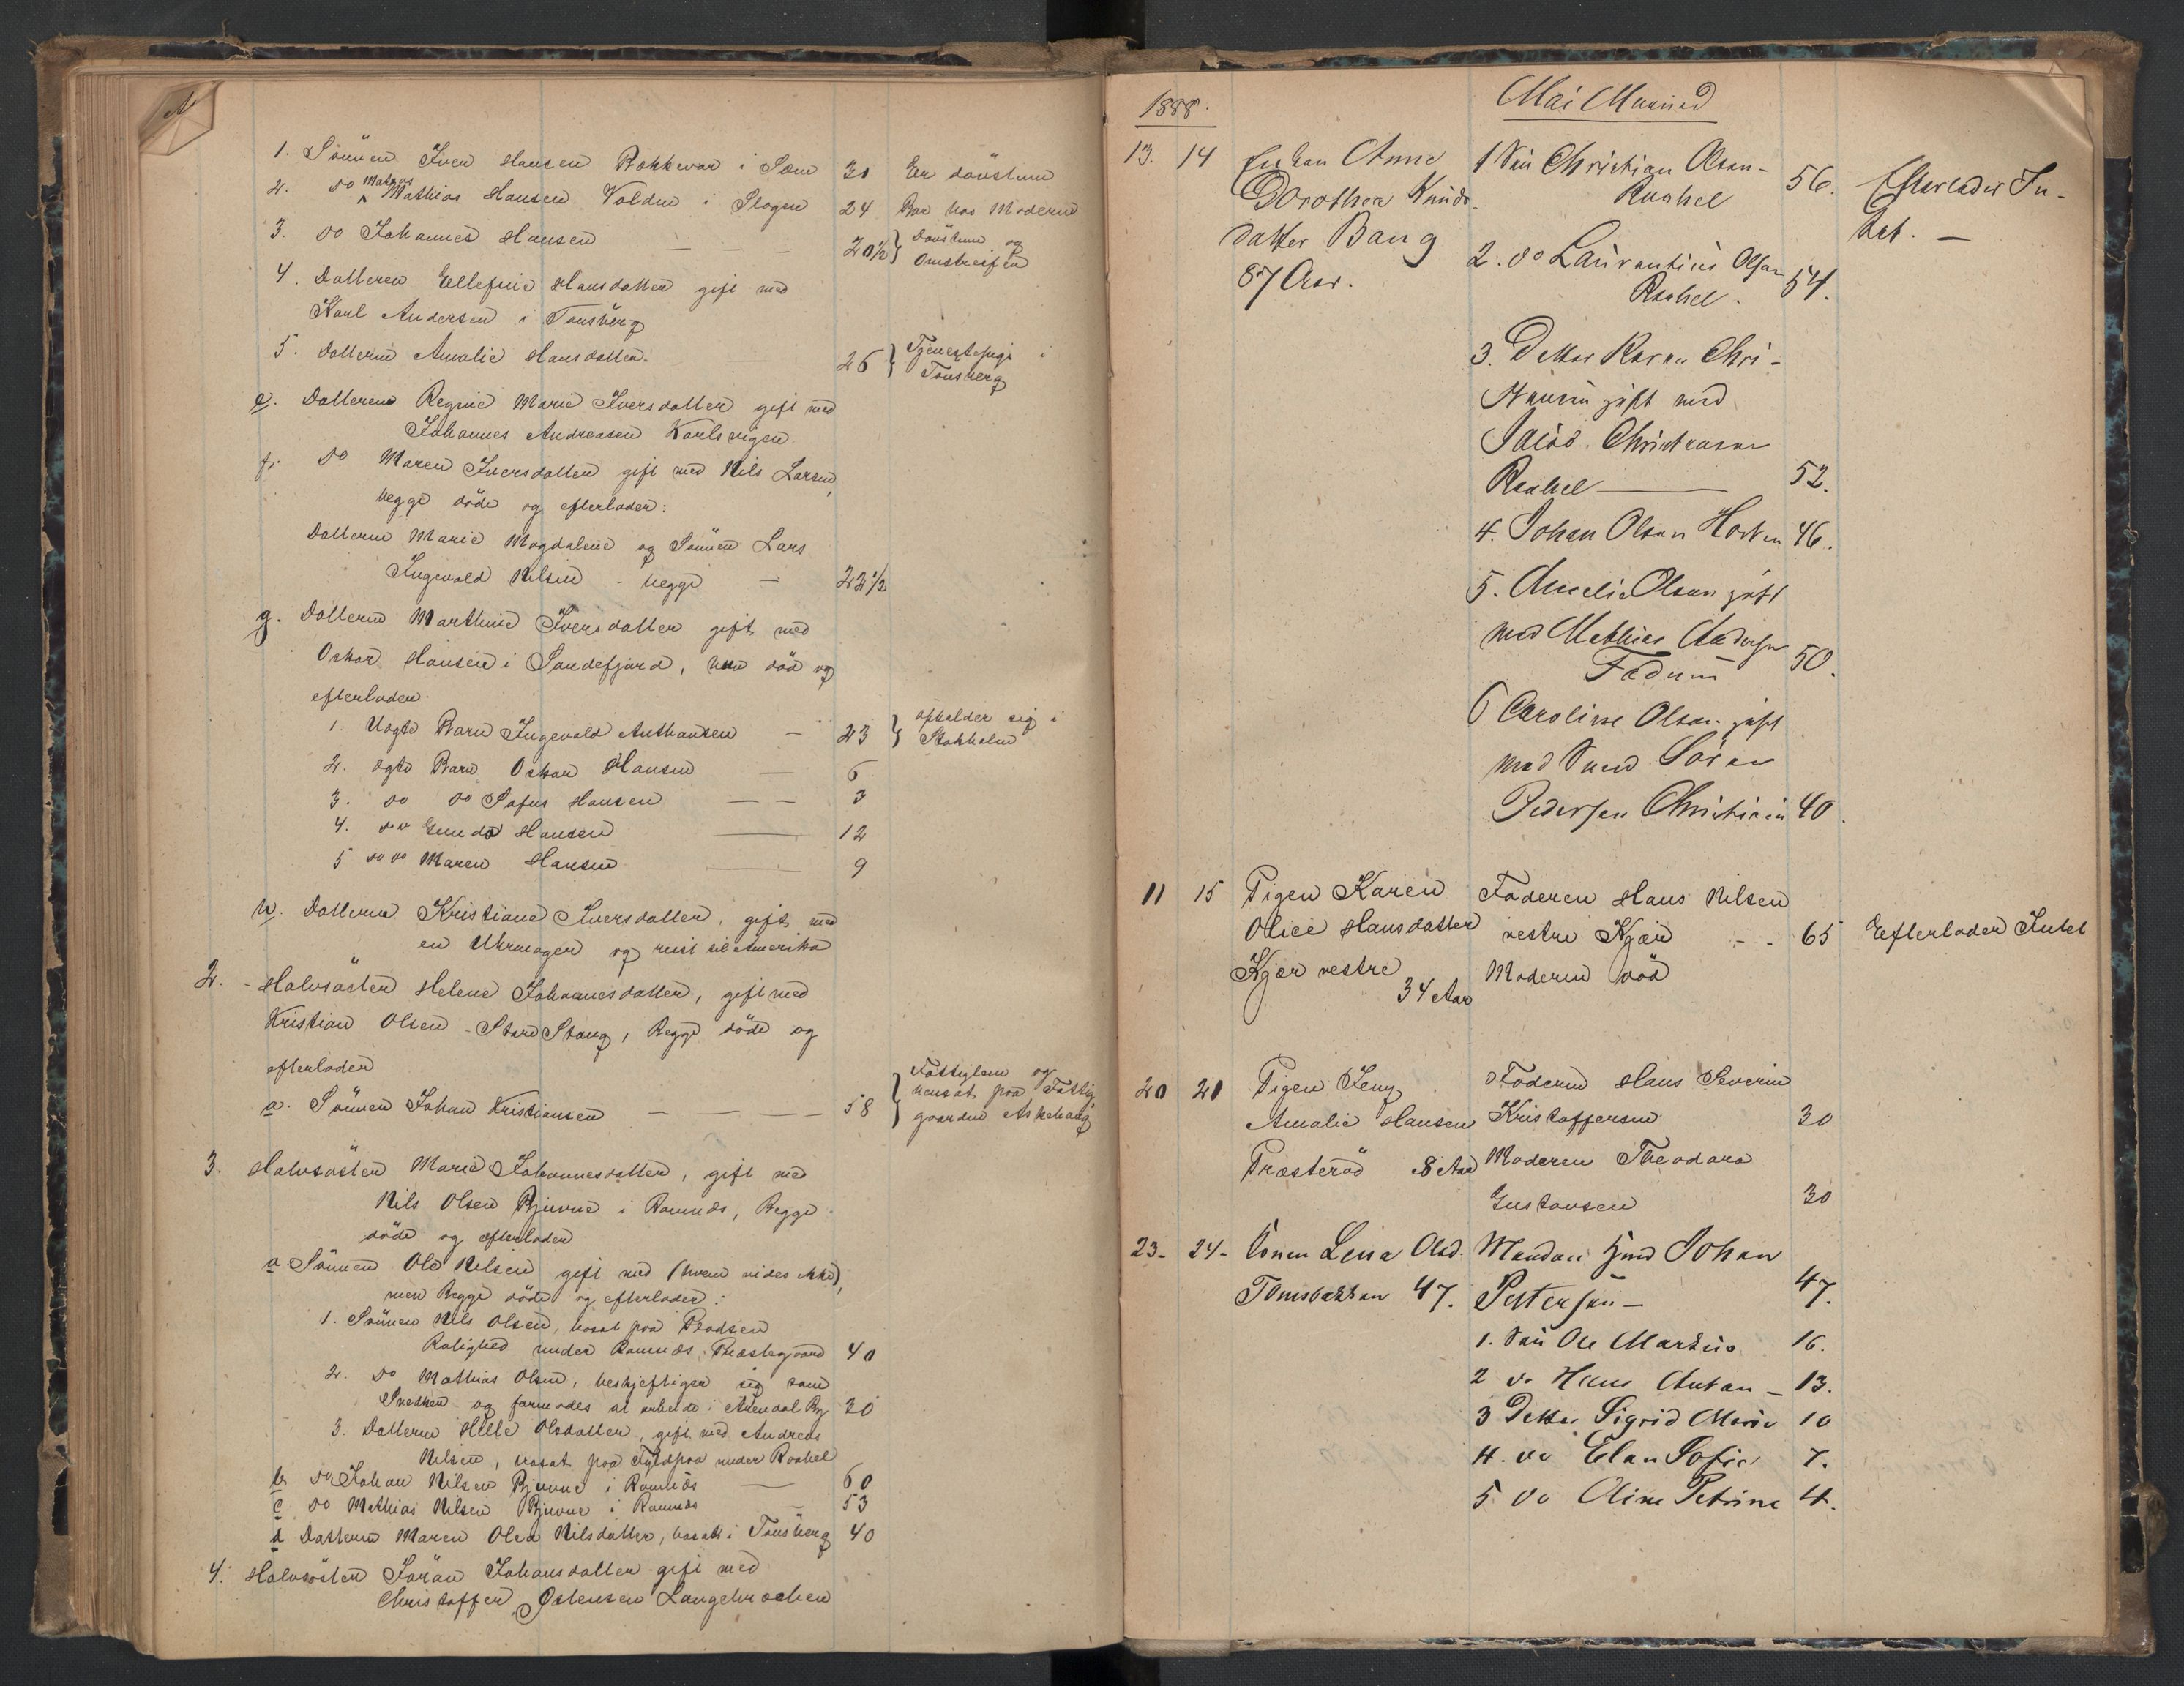 1. Sönnen Iver Hansen Bakkevar i Sæm 30 Er dövstum
2. do Matros Mathias Hansen Volden i Slagen 24 Bor hos Moderen
3. do Johannes Hansen — — 20½ } Dovstum og Omstreifen
4. Datteren Ellefine Hansdatter gift med
Karl Andersen i Tønsberg
5. Datteren Amalie Hansdatter 26 } Tjenestepige i Tønsberg
e. Datteren Regine Marie Iversdatter gift med
Johannes Andreasen Karlsvigen
f. do Maren Iversdatter gift med Nils Larsen,
begge döde og efterlader:
Datteren Marie Magdalene og Sönnen Lars
Ingevald Nilsen - begge — 22½
g. Datteren Marthine Iversdatter gift med
Oskar Hansen i Sandefjord, hun död og
efterlader
1. Uægte Barn Ingevald Anthansen — 23 } opholder sig i Stokholm
2. ægte Barn Oskar Hansen — 6
3. do do Sofus Hansen — — 3
4. do Gunda Hansen — 12
5 do do Maren Hansen — 9
h. Datteren Kristiane Iversdatter, gift med
en Uhrmager og reist til Amerika
2. - Halvsöster Helene Johannesdatter, gift med
Kristian Olsen - Store Stang, Begge döde og
efterlader
a. Sönnen Johan Kristiansen — — — 58 } Fattiglem og bensat paa Fattiggaarden Askehaug
3. Halvsöster Marie Johannesdatter, gift med
Nils Olsen Bjuvne i Ramnæs, Begge
döde og efterlader
a Sönnen Ole Nilsen gift med (hvem vides ikke),
men Begge döde og efterlader:
1. Sönnen Nils Olsen, bosat paa Pladsen
Rolighed under Ramnæs Præstegaard 40
2. do Mathias Olsen, beskjeftiger sig som
Snedker og formodes at arbeide i Arendal By 30
3. Datteren Helle Olsdatter, gift med Andreas
Nilsen, bosat paa Fyldpaa under Raahel
b do Johan Nilsen Bjuvne i Ramnæs — 60
c do Mathias Nilsen Bjuvne i Ramnæs — 53
d Datteren Maren Olea Nilsdatter, bosat i Tønsberg 40
4. Halvsöster Jöran Johansdatter gift med
Christoffer Østensen Langebrækken
1888. Mai Maaned
13. 14 Enken Anne 1 Sön Christian Olsen-
Dorothea Knuds- Raahel 56. Efterlader In-
datter Bang tet. —
87 Aar. 2. do Laurantius Olsen
Raahel. 54.
3. Datter Karen Chri-
stiansen gift med
Jacob Christensen
Raahel — 52.
4. Johan Olsen Horten 46.
5. Amelie Olsen gift
med Mathias Andersen
Fadum 50.
6 Caroline Olsen gift
med Svend Sören
Pedersen Christiania 40
11 15 Pigen Karen Faderen Hans Nilsen
Olice Hansdatter vestre Kjær - - 65 Efterlader Intet
Kjær vestre Moderen död
34 Aar
20 20 Pigen Jeny Faderen Hans Severin
Amalie Hansen Kristoffersen 30
Præsterød 8 Aar Moderen Theodora
Gustavsen 30
23- 24- Konen Lena Olsd. Manden Gmd Johan
Tomsbakken 47. Pettersen — 47.
1. Sön Ole Martin 16.
2 do Hans Anton — 13.
3 Datter Sigrid Marie 10
4. do Elen Sofie 7.
5 do Oline Petrine 4.